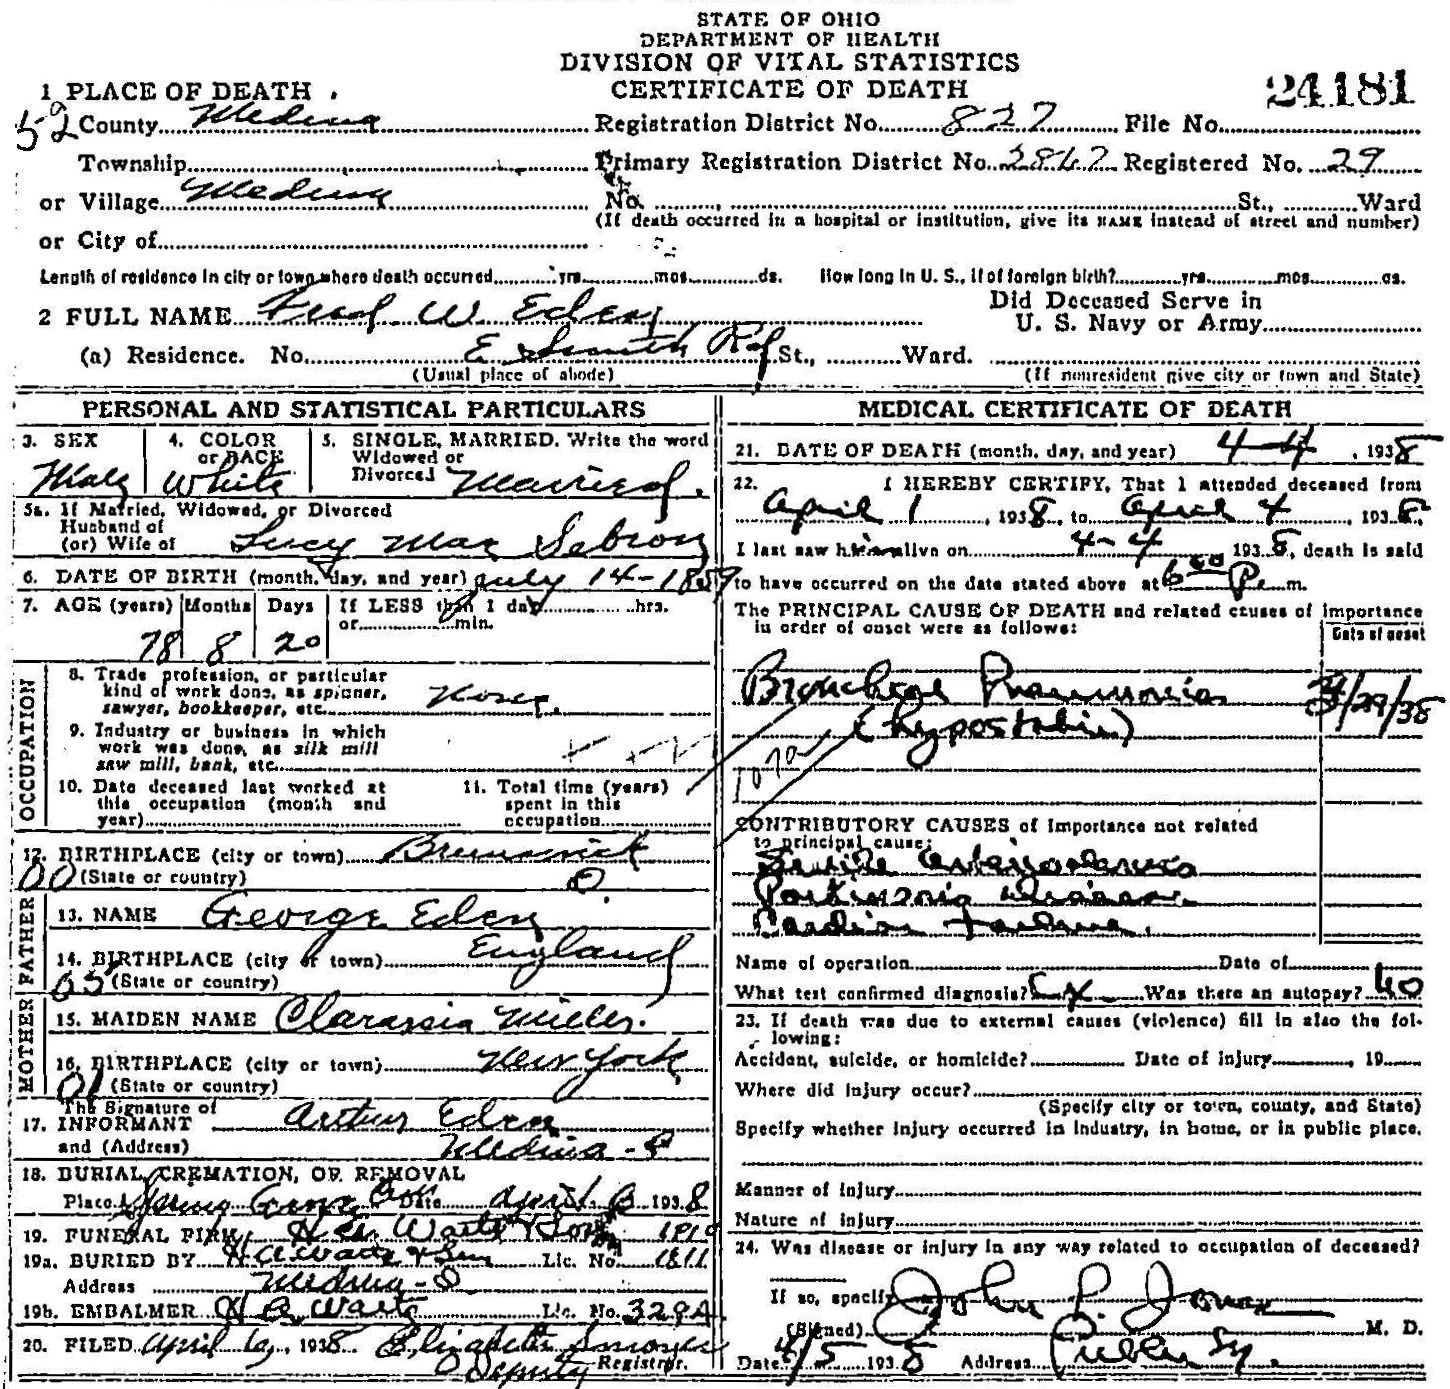 STATE OF OHIO
DEPARTMENT OF HEALTH
DIVISION OF VITAL STATISTICS
CERTIFICATE OF DEATH
24181
1 PLACE OF DEATH
52 County Medina Registration District No. 827 File No.
Township Primary Registration District No. 2847 Registered No. 29
or Village Medina No. St., Ward
(If death occurred in a hospital or institution, give its NAME instead of street and number)
or City of
Length of residence in city or town where death occurred yrs. mos. ds. How long in U. S., if of foreign birth? yrs. mos. ds.
2 FULL NAME Fred W Eden Did Deceased Serve in U. S. Navy or Army
(a) Residence. No. E Smith Rd St., Ward.
(Usual place of abode) (If nonresident give city or town and State)
PERSONAL AND STATISTICAL PARTICULARS
3. SEX Male
4. COLOR or RACE White
5. SINGLE, MARRIED, Write the word Widowed or Divorced Married.
5a. If Married, Widowed, or Divorced
Husband of
(or) Wife of Lucy Mae
6. DATE OF BIRTH (month, day, and year) July 14-1859
7. AGE (years) Months Days If LESS than 1 day hrs.
or min.
78 8 20
OCCUPATION
8. Trade profession, or particular
kind of work done, as spinner,
sawyer, bookkeeper, etc. None.
9. Industry or business in which
work was done, as silk mill
saw mill, bank, etc.
10. Date deceased last worked at
this occupation (month and
year)
11. Total time (years)
spent in this
occupation
12. BIRTHPLACE (city or town) Brunswick
00 (State or country) O.
FATHER
13. NAME George Eden
14. BIRTHPLACE (city or town) England
05 (State or country)
MOTHER
15. MAIDEN NAME Miller.
16. BIRTHPLACE (city or town) New York
01 (State or country)
The Signature of
17. INFORMANT Arthur Eden
and (Address) Medina - O
18. BURIAL, CREMATION, OR REMOVAL
Place Spring Grove Cem Date April 6 1938
19. FUNERAL FIRM Waite & Son 1810
19a. BURIED BY H A Waite & Son Lic. No. 1811
Address Medina - O
19b. EMBALMER H A Waite Lic. No. 329A
20. FILED April 6, 1938 Elizabeth
Deputy Registrar.
MEDICAL CERTIFICATE OF DEATH
21. DATE OF DEATH (month, day, and year) 4-4, 1938
22. I HEREBY CERTIFY, That I attended deceased from
April 1, 1938, to April 4, 1938,
I last saw him alive on 4-4 1938, death is said
to have occurred on the date stated above at 6 00 P. m.
The PRINCIPAL CAUSE OF DEATH and related causes of importance
in order of onset were as follows:
Date of onset
Bronchial Pneumonia 3/29/38
(hypostatic)
107a
CONTRIBUTORY CAUSES of importance not related
to principal cause:
Senile
Parkinsons disease
Cardiac failure.
Name of operation Date of
What test confirmed diagnosis? Ex Was there an autopsy? No
23. If death was due to external causes (violence) fill in also the fol-
lowing:
Accident, suicide, or homicide? Date of injury , 19
Where did injury occur?
(Specify city or town, county, and State)
Specify whether injury occurred in industry, in home, or in public place.
Manner of injury
Nature of injury
24. Was disease or injury in any way related to occupation of deceased?
If so, specify
(Signed) John L. Jones M. D.
Date 4/5 1938 Address